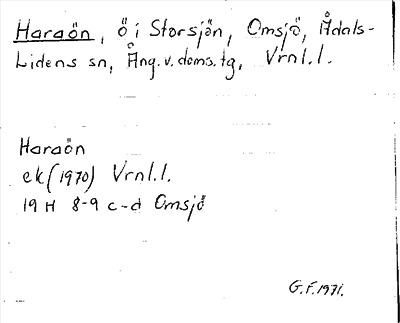 Haraön, ö i Storsjön, Omsjö, Ådals-
Lidens sn, Ång. v. doms. tg, Vrnl. l.
Haraön
ek (1970) Vrnl. l.
19 H 8-9 c-d Omsjö
G. F. 1971.